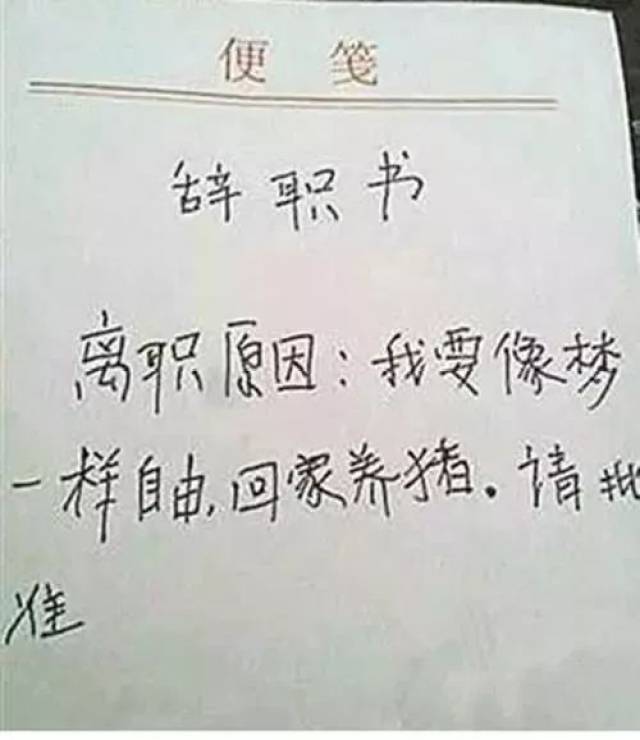 便笺
辞职书
离职原因：我要像梦
一样自由，回家养猪。请批
准